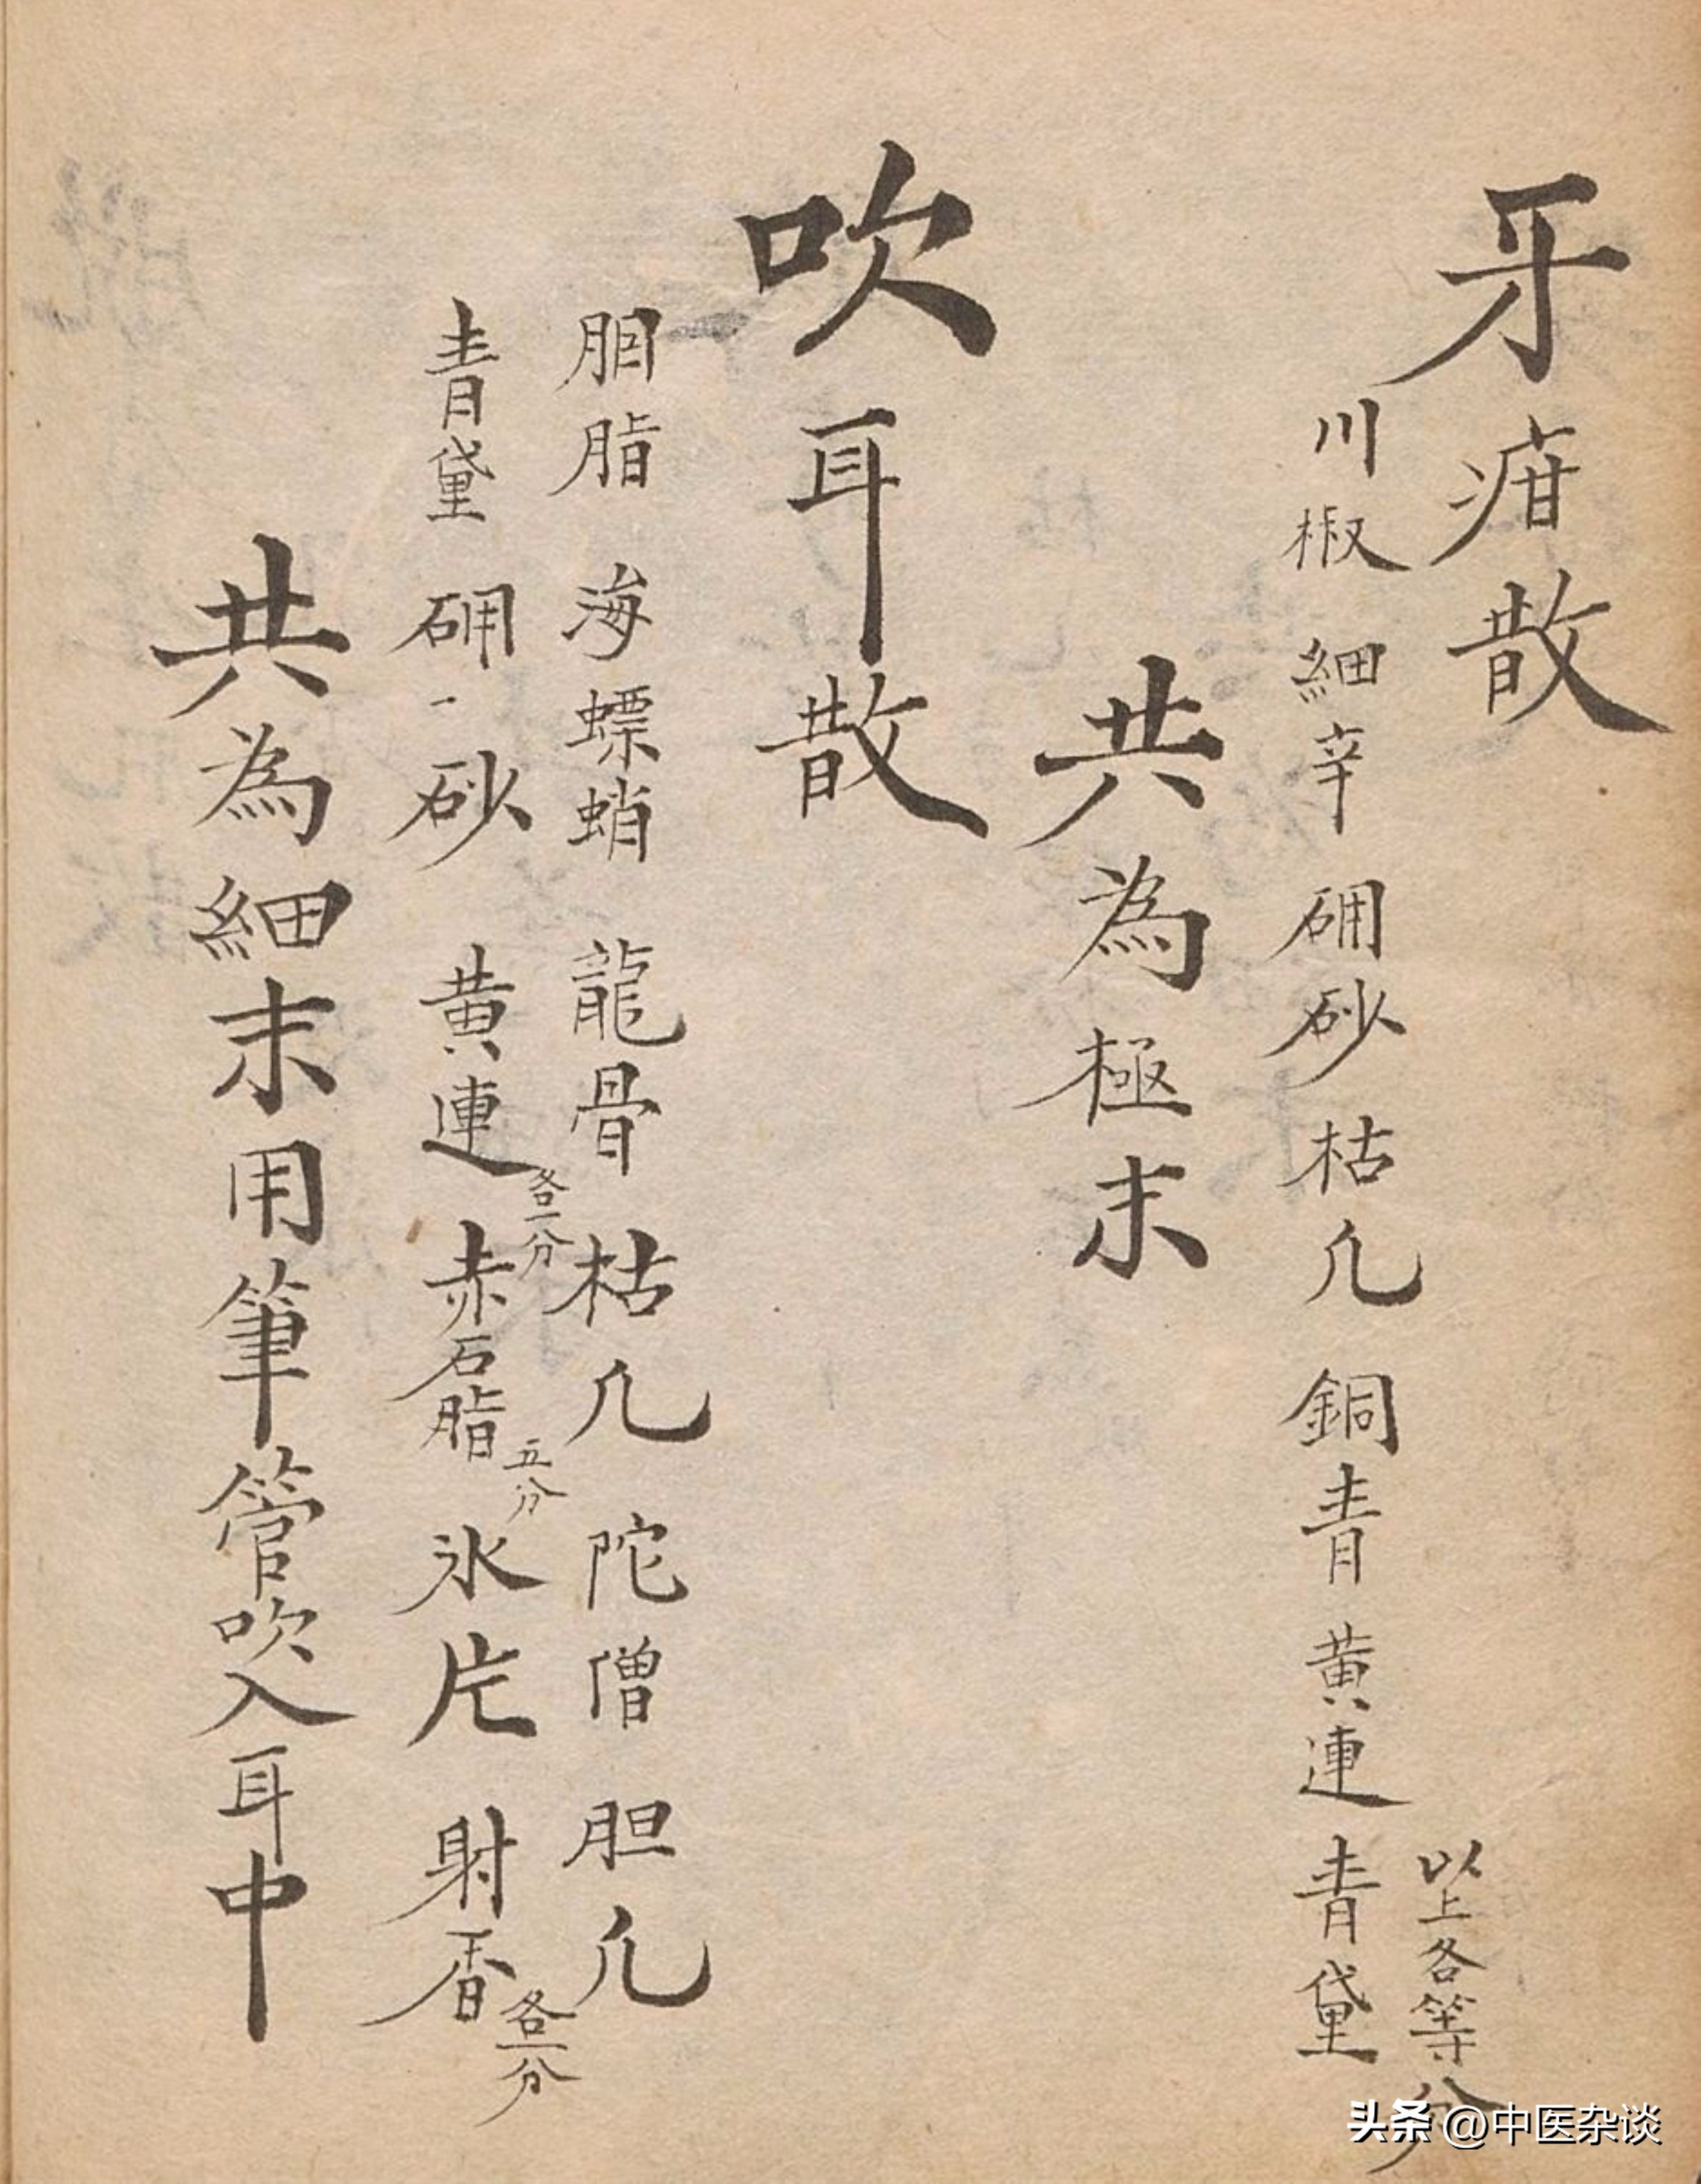 牙疳散
川椒 細辛 硼砂 枯凢 銅青 黄連 青黛
以上各等分
共為極末
吹耳散
胭脂 海螵蛸 龍骨 枯凢 陀僧 胆凢
青黛 硼砂 黄連各一分 赤石脂五分 氷片 射香各一分
共為細末用筆管吹入耳中
头条 @中医杂谈